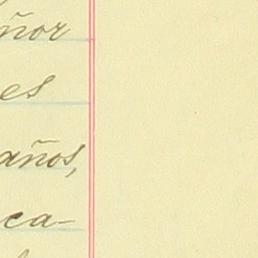 ñor
es
años,
ca-